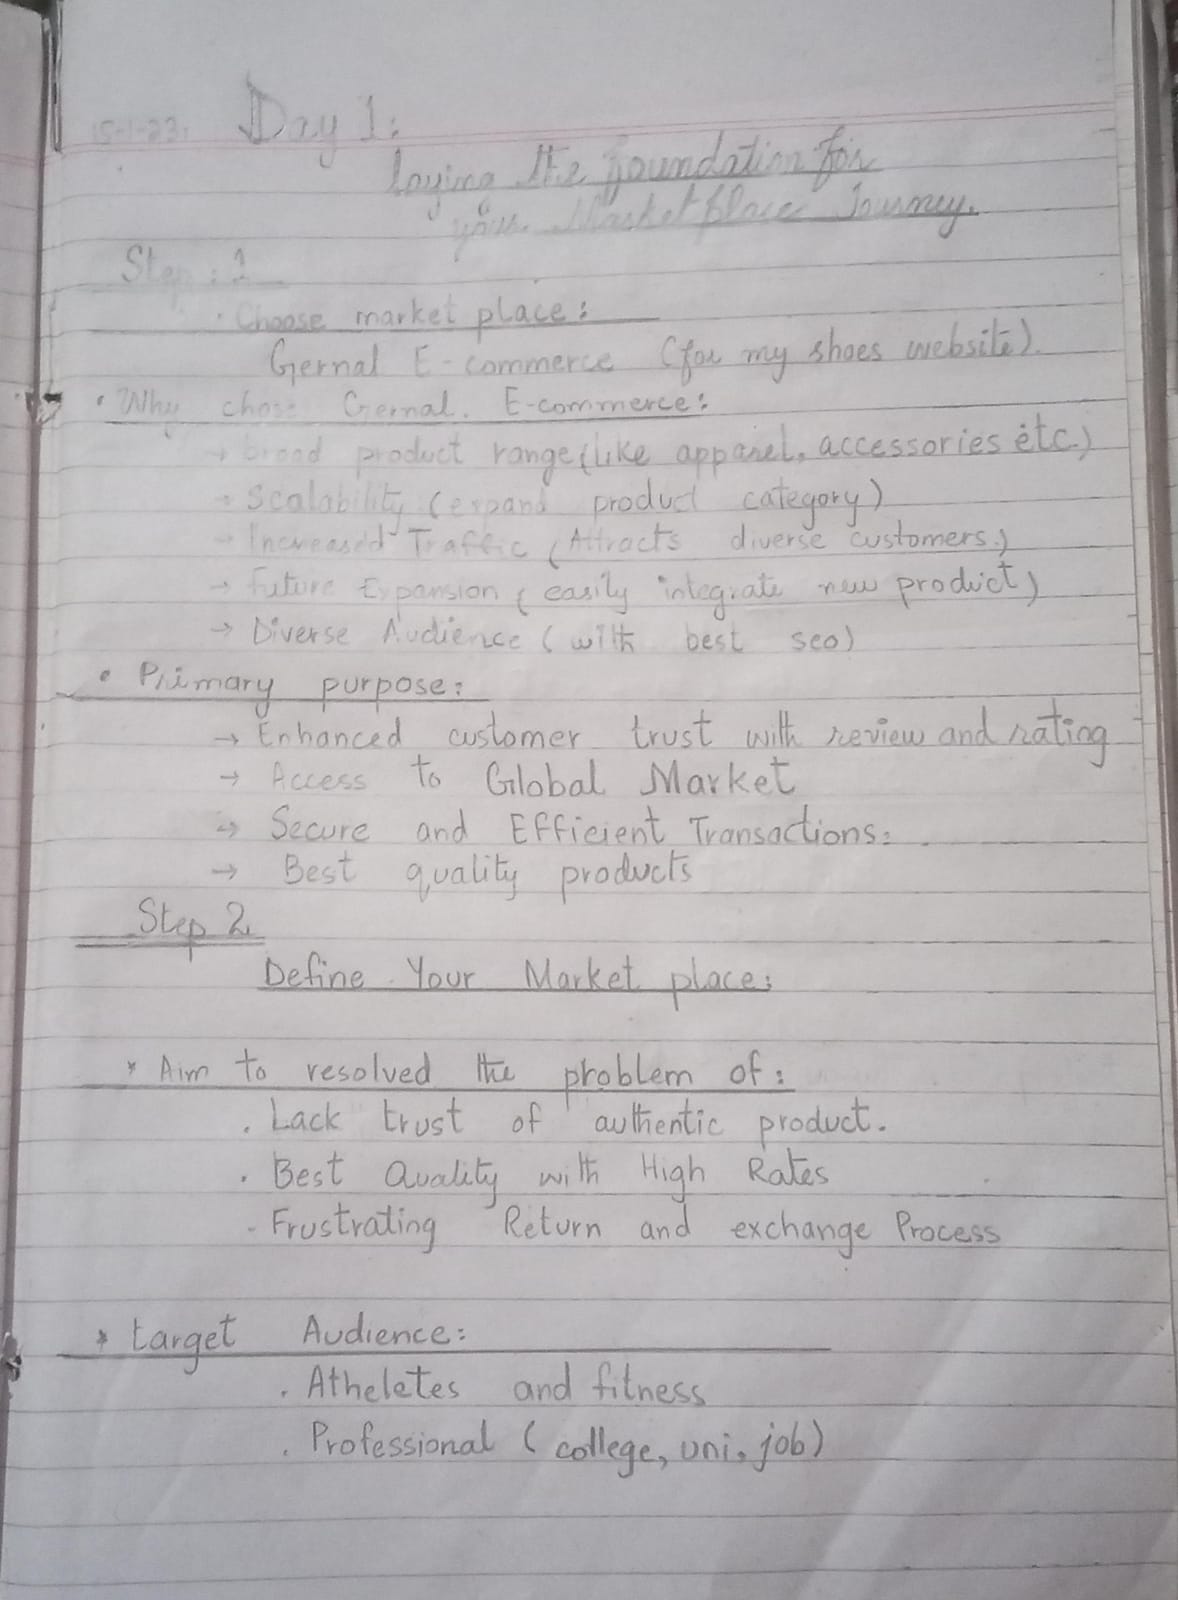 15-1-23. Day 1:
laying the foundation for
your Marketplace Journey.
Step : 1
· Choose market place :
Gernal E-commerce (for my shoes website).
· Why chose Gernal. E-commerce :
→ broad product range (like apparel, accessories etc.)
→ Scalability (expand product category)
→ Increased Traffic (Attracts diverse customers.)
→ Future Expansion (easily integrate new product)
→ Diverse Audience (with best seo)
• Primary purpose :
→ Enhanced customer trust with review and rating
→ Access to Global Market
→ Secure and Efficient Transactions.
→ Best quality products
Step 2
Define Your Market place :
* Aim to resolved the problem of :
. Lack trust of authentic product.
. Best Quality with High Rates
- Frustrating Return and exchange Process
* target Audience :
. Atheletes and fitness
. Professional (college, uni, job)